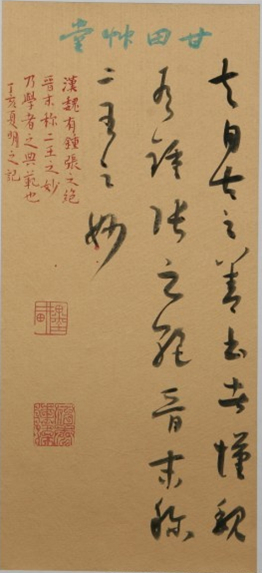 甘田艸堂
夫自古之善書者漢魏
有鍾張之絕晉末称
二王之妙
漢魏有鍾張之絕
晉末称二王之妙
乃學者之典範也
丁亥夏明之記